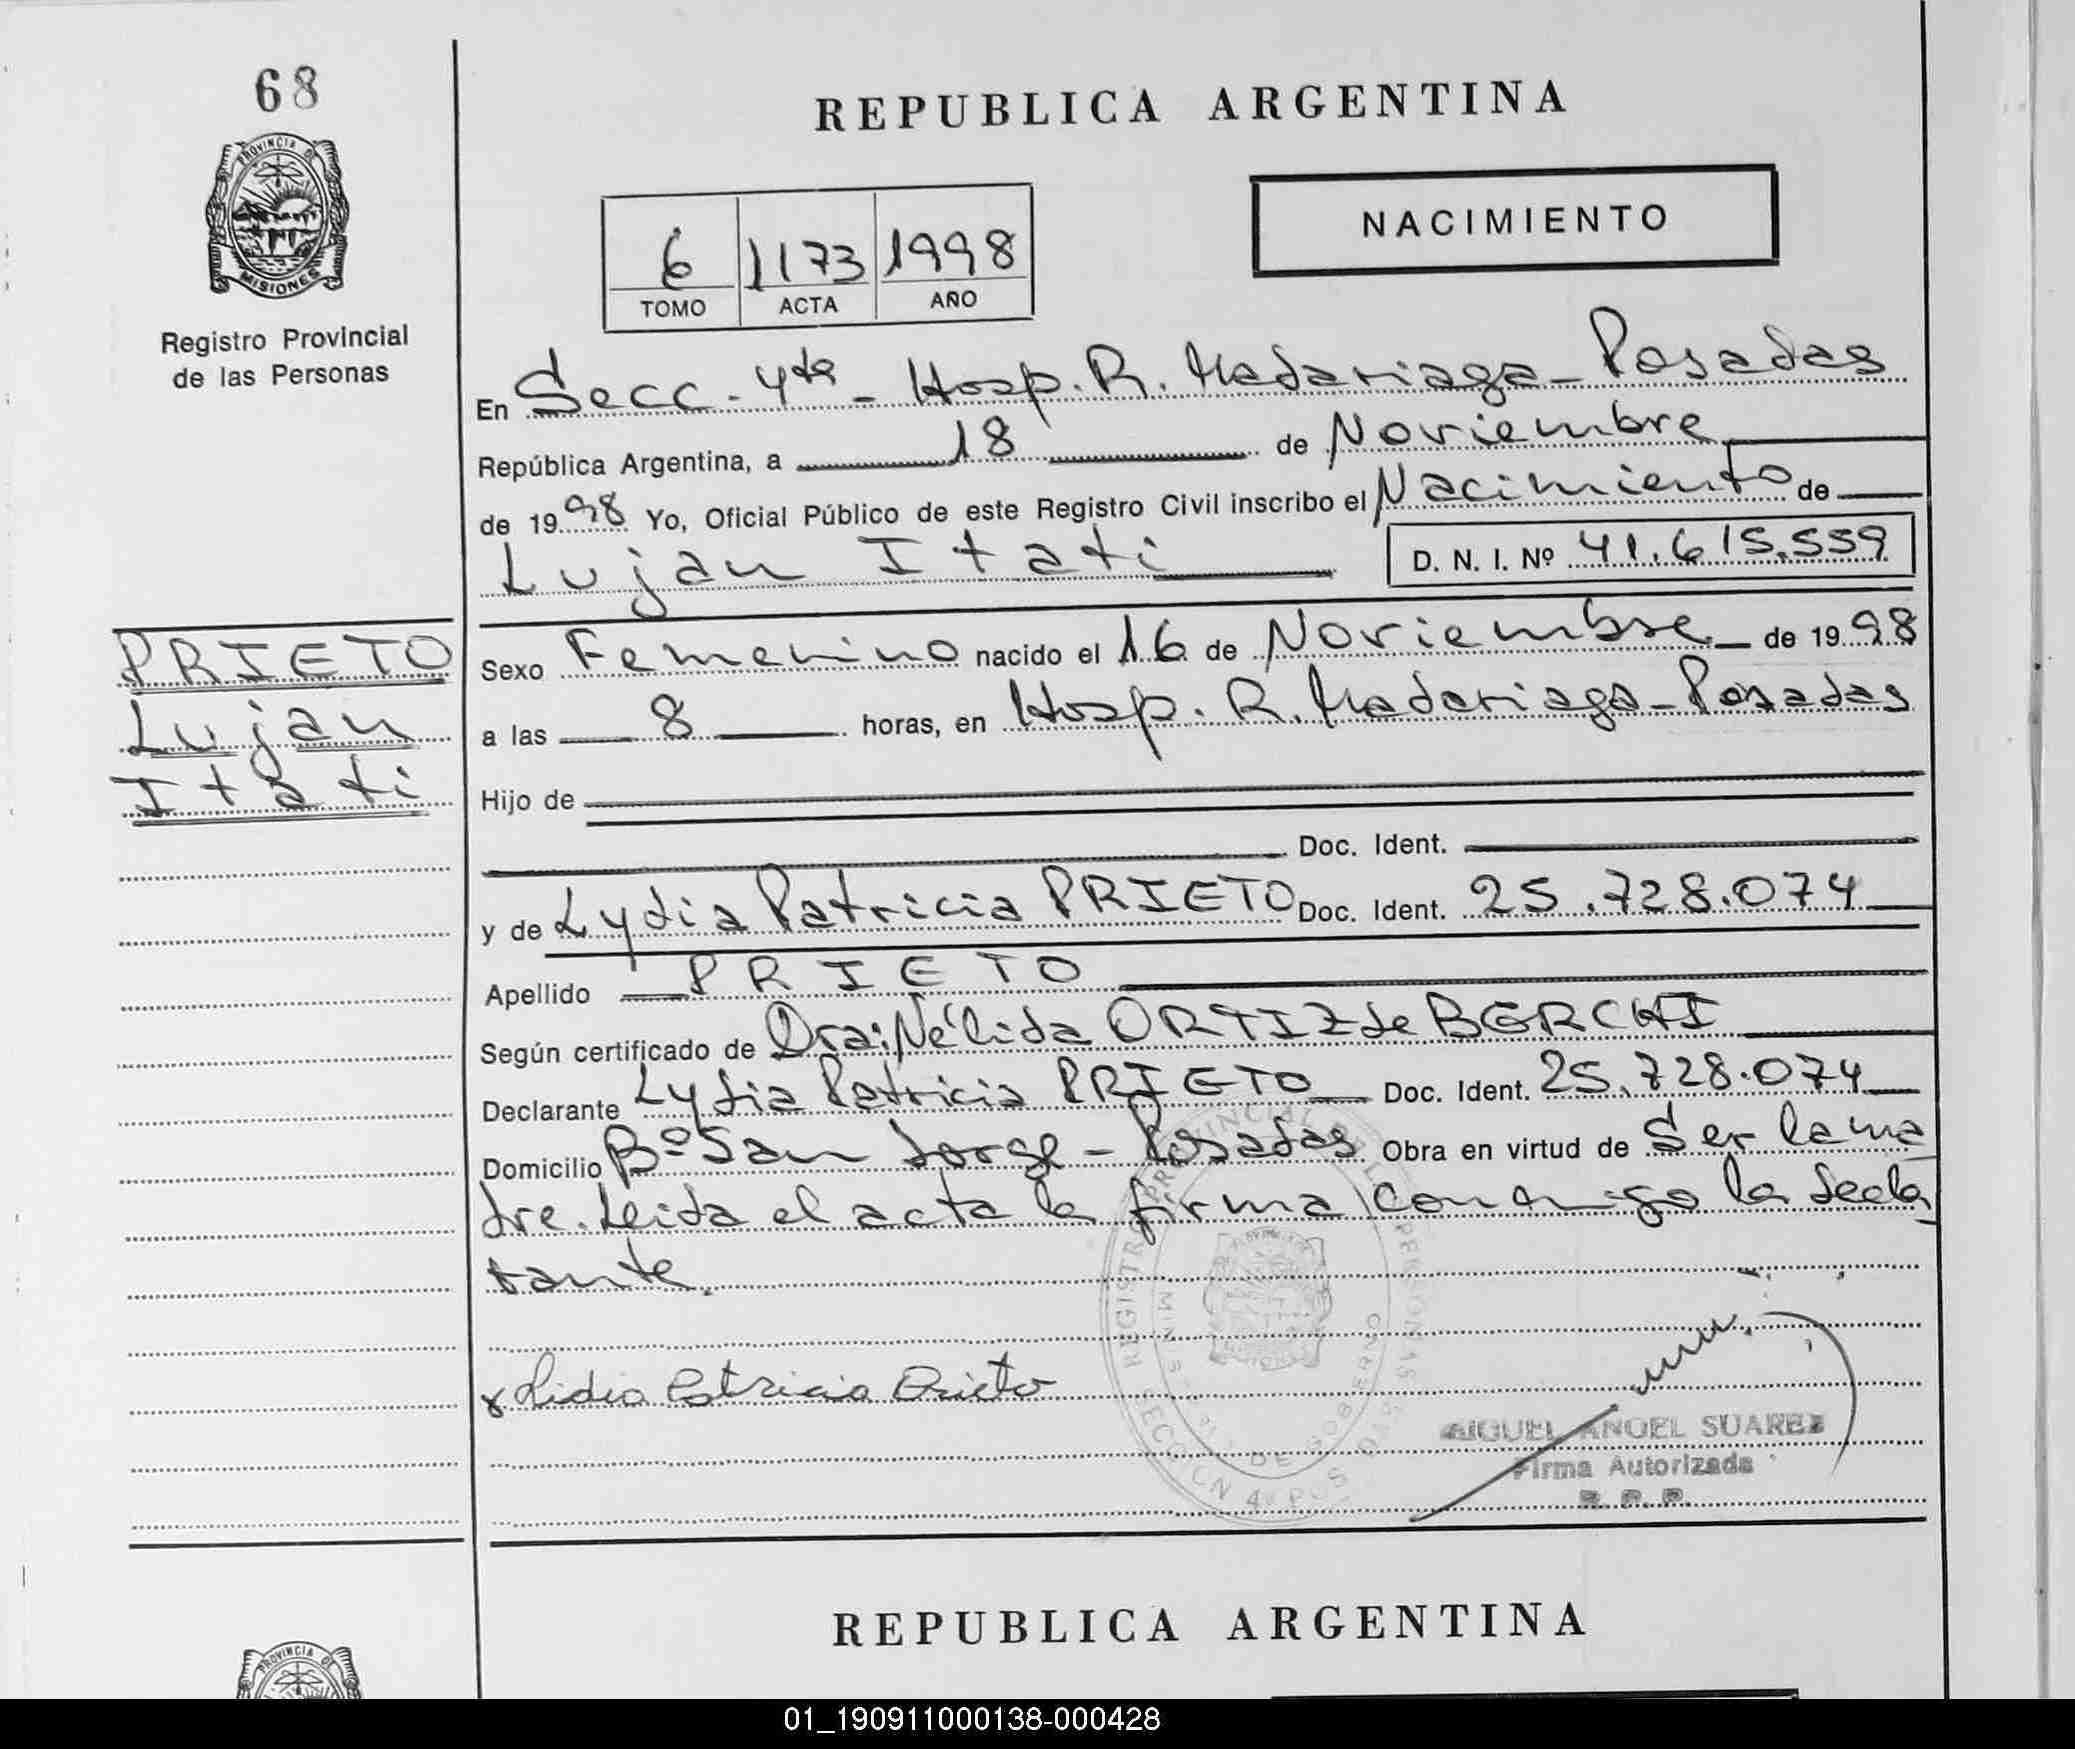 68
PROVINCIA DE
MISIONES
Registro Provincial
de las Personas
REPUBLICA ARGENTINA
NACIMIENTO
6 1173 1998
TOMO ACTA AÑO
En Secc. 4ta - Hosp. R. Madariaga - Posadas
República Argentina, a 18 de Noviembre
de 1998 Yo, Oficial Público de este Registro Civil inscribo el Nacimiento de
Lujan Itati D. N. I. Nº 41.615.559
PRIETO
Lujan
Itati
Sexo Femenino nacido el 16 de Noviembre de 1998
a las 8 horas, en Hosp. R. Madariaga - Posadas
Hijo de
Doc. Ident.
y de Lydia Patricia PRIETO Doc. Ident. 25.728.074
Apellido PRIETO
Según certificado de Dra: Nélida ORTIZ de BERCHI
Declarante Lydia Patricia PRIETO Doc. Ident. 25.728.074
Domicilio Bº San Jorge - Posadas Obra en virtud de Ser la ma
dre. Leida el acta la firma conmigo la decla
rante.
x Lidia Patricia Prieto
MIGUEL ANGEL SUAREZ
Firma Autorizada
R. P. P.
REPUBLICA ARGENTINA
PROVINCIA DE
01_190911000138-000428